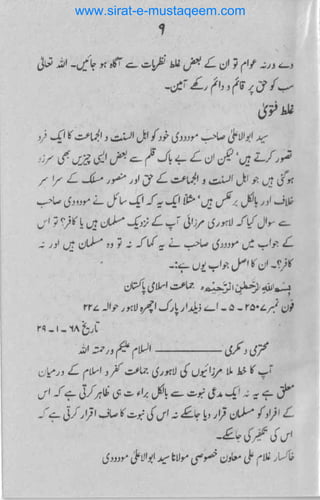 www.sirat-e-mustaqeem.com
۹
دے ورنہ عوام تو ان کے بعض غلط نظریات سے آگاہ ہو جائیں۔ اللہ تعالیٰ
سب کو حق پر قائم و دائم رکھے آمین۔
غلط فتویٰ
سید ابوالاعلیٰ صاحب مودودی خود کو اہل السنت والجماعت کا ایک فرد
تصور کرتے ہیں' لیکن ان کے بے باک قلم سے بعض ایسی چیزیں بھی سرزد
ہو گئی ہیں جو اہل السنت و الجماعت کے حق اور منصور مسلک کے سرا سر
خلاف اور بالکل برعکس ہیں' مثلاً ایک یہ کہ ایک سائل نے مودودی صاحب
سے سوال کیا کہ لاہوری مرزائی آپ کے نزدیک مسلمان ہیں یا کافر؟ تو اس
کے جواب میں مودودی صاحب نے یہ کہا کہ نہ تو وہ مسلمان ہیں اور نہ
کافر؟۔ ان کا اصل جواب یوں ہے:۔
بسم اللہ الرحمن الرحیم جماعت اسلامی پاکستان
فون نمبر ۲۵۰۷ - ۵ - اے ذیلدار پارک اچھرہ لاہور حوالہ ۲۲۷
تاریخ ۶۸ - ۱ - ۲۹
محترمی و مکرمی ـــــــــ السلام علیکم ورحمتہ اللہ
آپ کا خط ملا مرزائیوں کی لاہوری جماعت کفر و اسلام کے درمیان
معلق ہے یہ نہ ایک مدعی نبوت سے بالکل براءت ہی ظاہر کرتی ہے کہ اس
کے افراد کو مسلمان قرار دیا جا سکے نہ اس کی نبوت کا صاف اقرار کرتی ہے کہ
اس کی تکفیر کی جا سکے۔
خاکسار غلام علی معاون خصوصی مولانا سید ابوالاعلیٰ مودودی